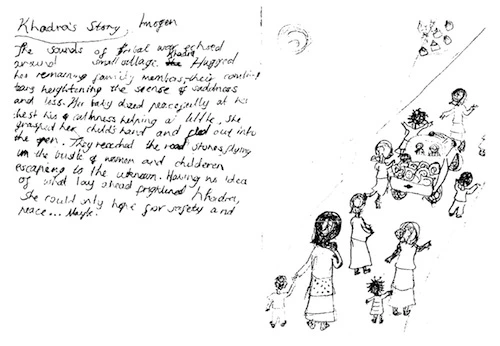 Khadra's Story, Imogen
The sounds of tribal war echoed
around small village. Khadra Hugged
her remaining family members, their
tears heightening the scense of saddness
and loss. Her baby dozed peacefully at his
chest his calmness helping a little, She
grasped her child's hand and fled out into
the open. They reached the road stones flying
in the bustle of women and childeren
escapeing to the uknown. Having no idea
of what lay ahead frightened Khadra,
She could only hope for safety and
peace... Maybe!